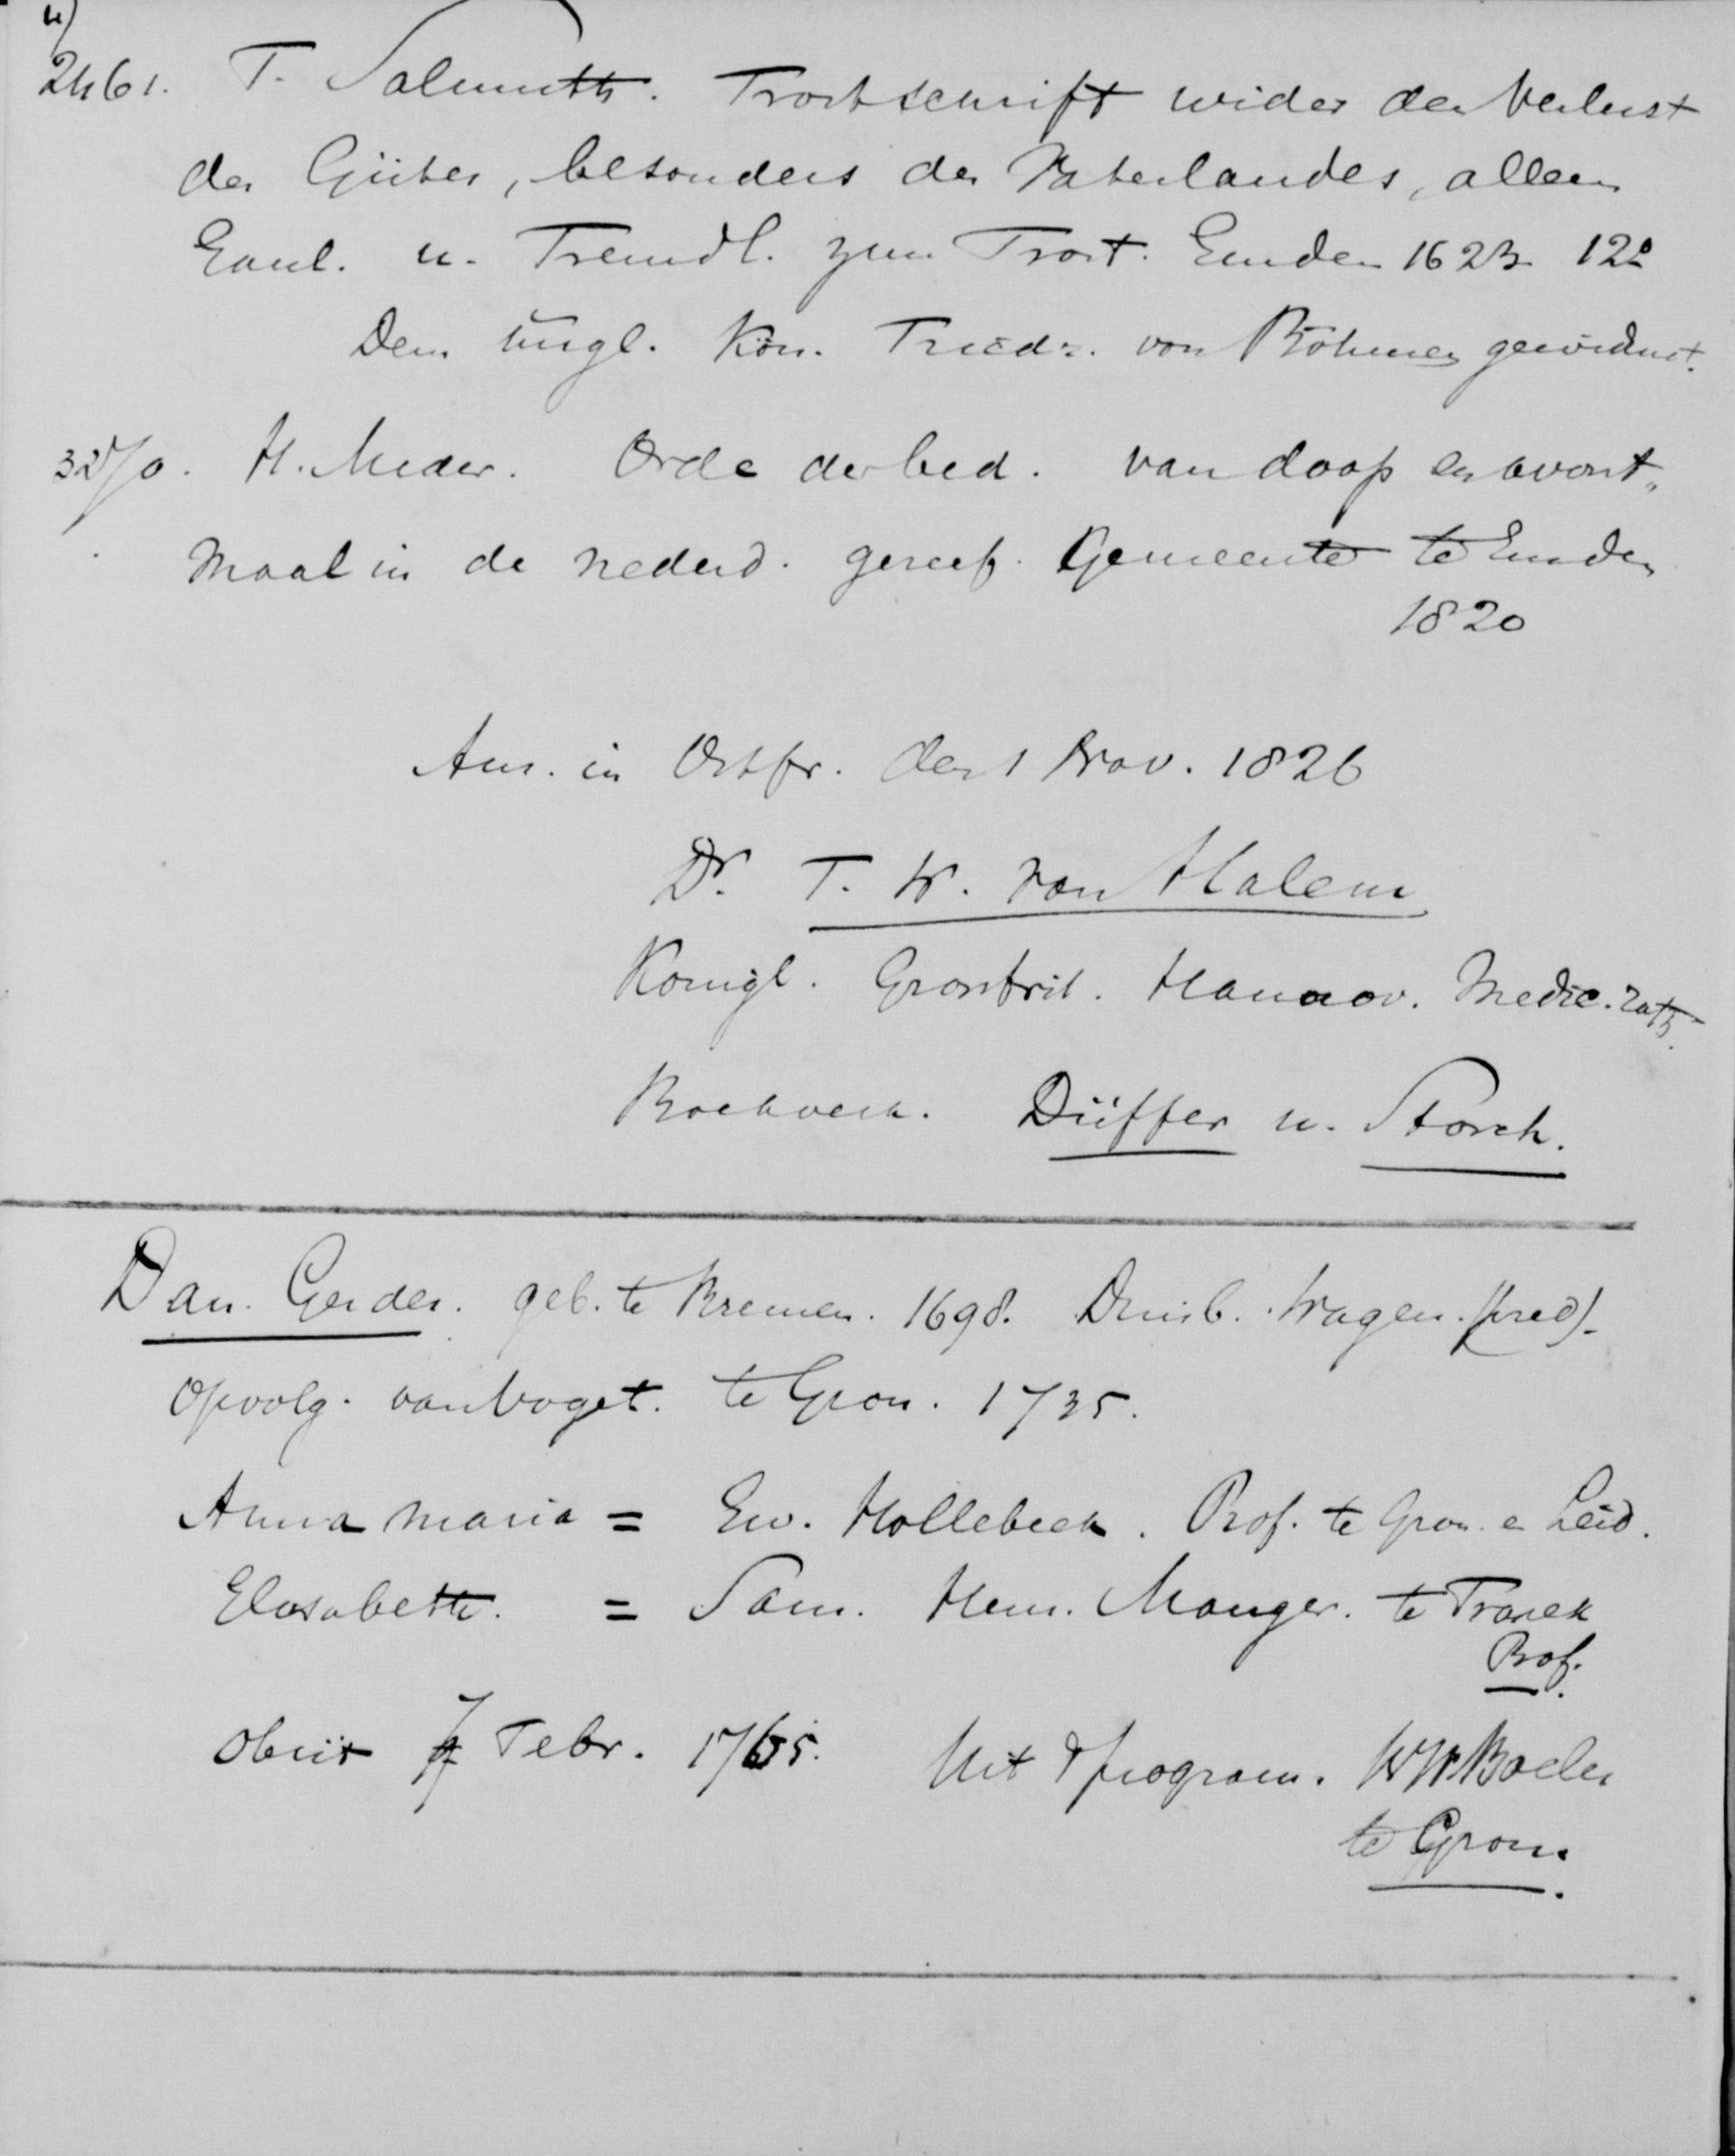 4)
2461. J. Salmuth. Trostschrift wider den Verlust
der Güter, besonders des Vaterlandes, allen
Exul. u. Fremdl. zum Trost. Emden 1623 12º
Dem ungl. Kön. Friedr. von Böhmen gewidmet.
3270. H. Meder. Orde der bed. van doop en avont„
maal in de nederd. gereef. Gemeente te Emden
1820
Aur. in Ostfr. den 1 Nov. 1826
Dr. F. W. von Halem
Königl. Grosbrit. Hannov. Medic. rath.
Boekverk. Düffer u. Storch.
Dan. Gerdes. geb. te Bremen. 1698. Duisb. Wagen. (pred).
opvolg. van Voget. te Gron. 1735.
Anna Maria = Ew. Hollebeek. Prof. te Gron. e Leid.
Elisabeth. = Sam. Henr. Manger. te Franek
Prof.
Obiit Febr. 1765. Uit 't program. Boeles
te Gron.